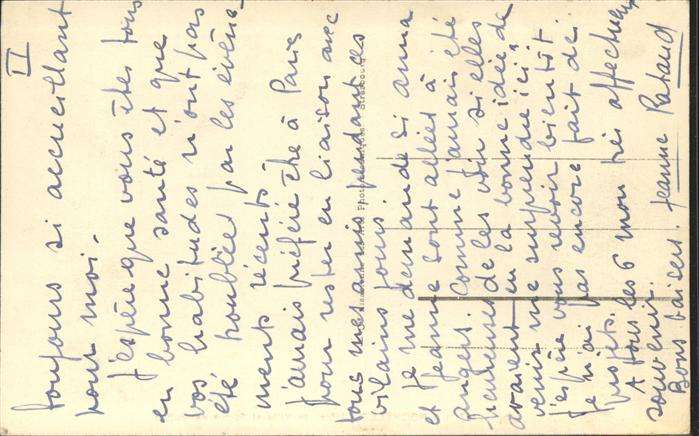 II
toujours si accueillant
pour moi.
J'espère que vous êtes tous
en bonne santé et que
vos habitudes n'ont pas
été troublées par les événe-
ments récents.
J'aurais préféré être à Paris
pour rester en liaison avec
tous mes amis pendant ces
vilains jours.
Je me demande si Anna
et Jeanne sont allées à
Angers. Comme j'aurais été
heureuse de les voir si elles
avaient eu la bonne idée de
venir me surprendre ici,
J'espère vous revoir bientôt.
Je n'ai pas encore fait de
projets.
A tous les 6 mon très affectueux
souvenir.
Bons baisers. Jeanne Rataud